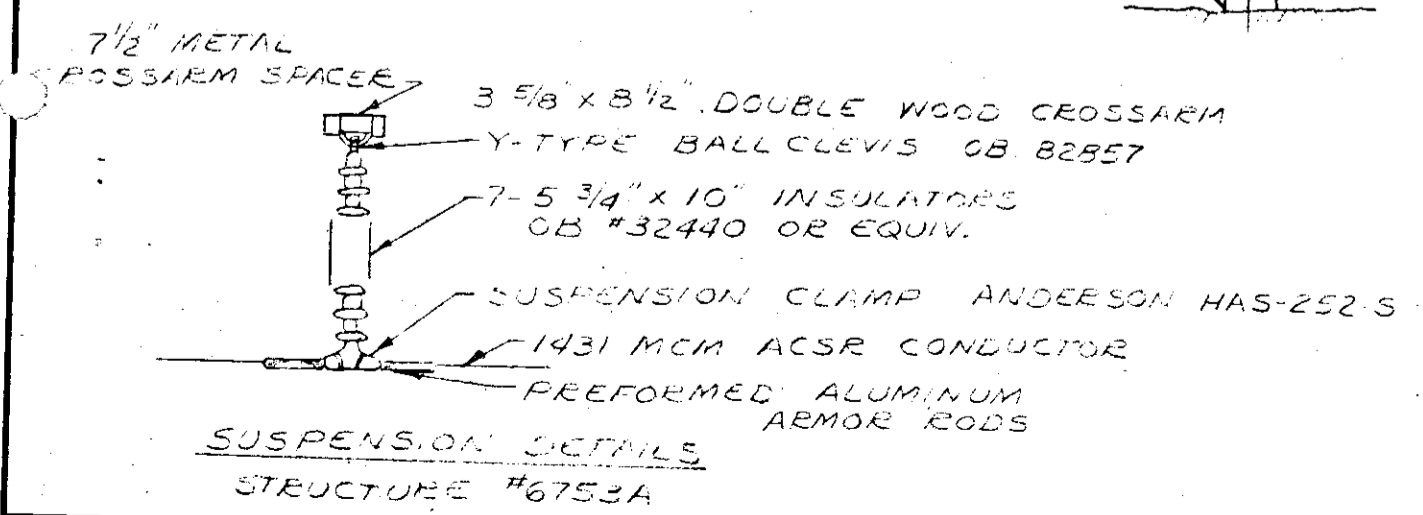 7 1/2" METAL
CROSSARM SPACER
3 5/8" X 8 1/2" DOUBLE WOOD CROSSARM
Y-TYPE BALL CLEVIS OB 82857
7-5 3/4" X 10" INSULATORS
OB #32440 OR EQUIV.
SUSPENSION CLAMP ANDERSON HAS-252-S
1431 MCM ACSR CONDUCTOR
PREFORMED ALUMINUM
ARMOR RODS
SUSPENSION DETAILS
STRUCTURE #6753A